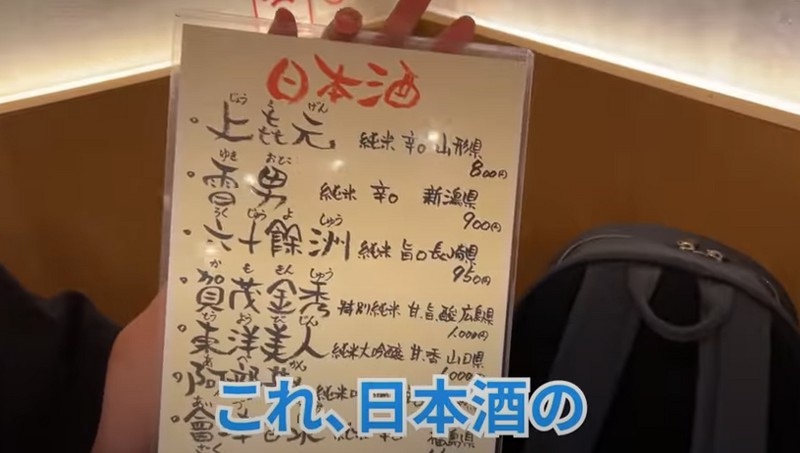 日本酒
じょう きも げん
上㐂元 純米 辛口 山形県
800円
ゆき おとこ
雪男 純米 辛口 新潟県
900円
ろく じゅう よ しゅう
六十餘洲 純米 旨口 長崎県
950円
か も きん しゅう
賀茂金秀 特別純米 甘、旨、酸 広島県
1,000円
とう よう び じん
東洋美人 純米大吟醸 甘、香 山口県
1,000円
あ べ かん
阿部勘 純米
純米 辛口 福島県
これ、日本酒の